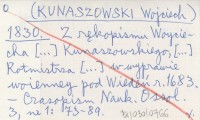 (KUNASZOWSKI Wojciech)
1830. Z rękopismu Wojcie-
cha [...] Kunaszowskiego, [...]
Rotmistrza [...] w wyprawie
woienney pod Wiedeń r. 1683.
— Czasopism Nauk. Ossol.
3, nr 1: 73-89.